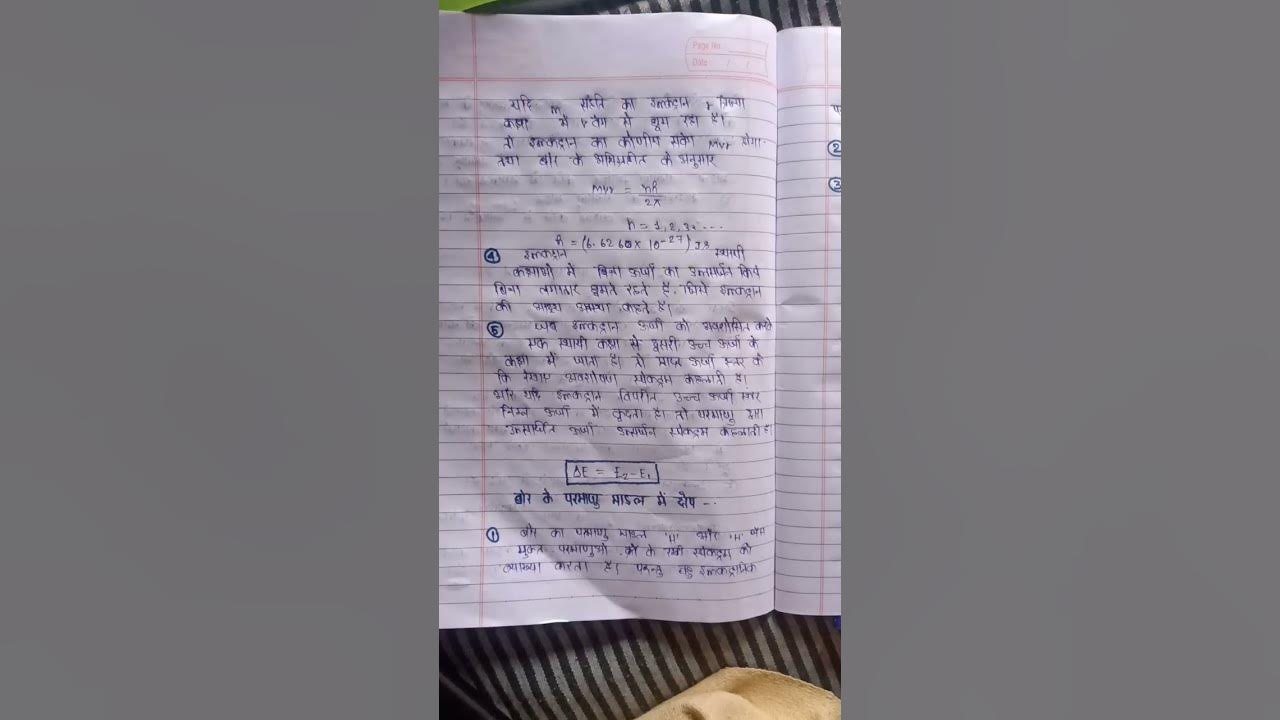 Page No.
Date / /
यदि m संहति का इलेक्ट्रान r त्रिज्या
कक्षा में v वेग से घूम रहा है।
तो इलेक्ट्रान का कोणीय संवेग mvr होगा
तथा बोर के के अनुसार
mvr = nh/2π
n = 1, 2, 3, ...
h = (6.6260 × 10⁻²⁷) J.s
④ इलेक्ट्रान स्थायी
कक्षाओं में बिना ऊर्जा का उत्सर्जन किये
बिना लगातार घूमते रहते है, जिसे इलेक्ट्रान
की अवस्था कहते है।
⑤ जब इलेक्ट्रान ऊर्जा को अवशोषित करके
एक स्थायी कक्षा से दूसरी उच्च ऊर्जा के
कक्षा में जाता है। तो प्राप्त ऊर्जा स्तर के
कि रेखाए अवशोषण स्पेक्ट्रम कहलाती है।
और यदि इलेक्ट्रान विपरीत उच्च ऊर्जा स्तर
निम्न ऊर्जा में कूदता है। तो परमाणु द्वारा
उत्सर्जित ऊर्जा उत्सर्जन स्पेक्ट्रम कहलाती है।
ΔE = E₂ - E₁
बोर के परमाणु माडल में दोष -..
① बोर का परमाणु माडल 'H' और 'H' जैसे
मुक्त परमाणुओ के स्पेक्ट्रम की
व्याख्या करता है। परन्तु यह इलेक्ट्रानिक
②
③